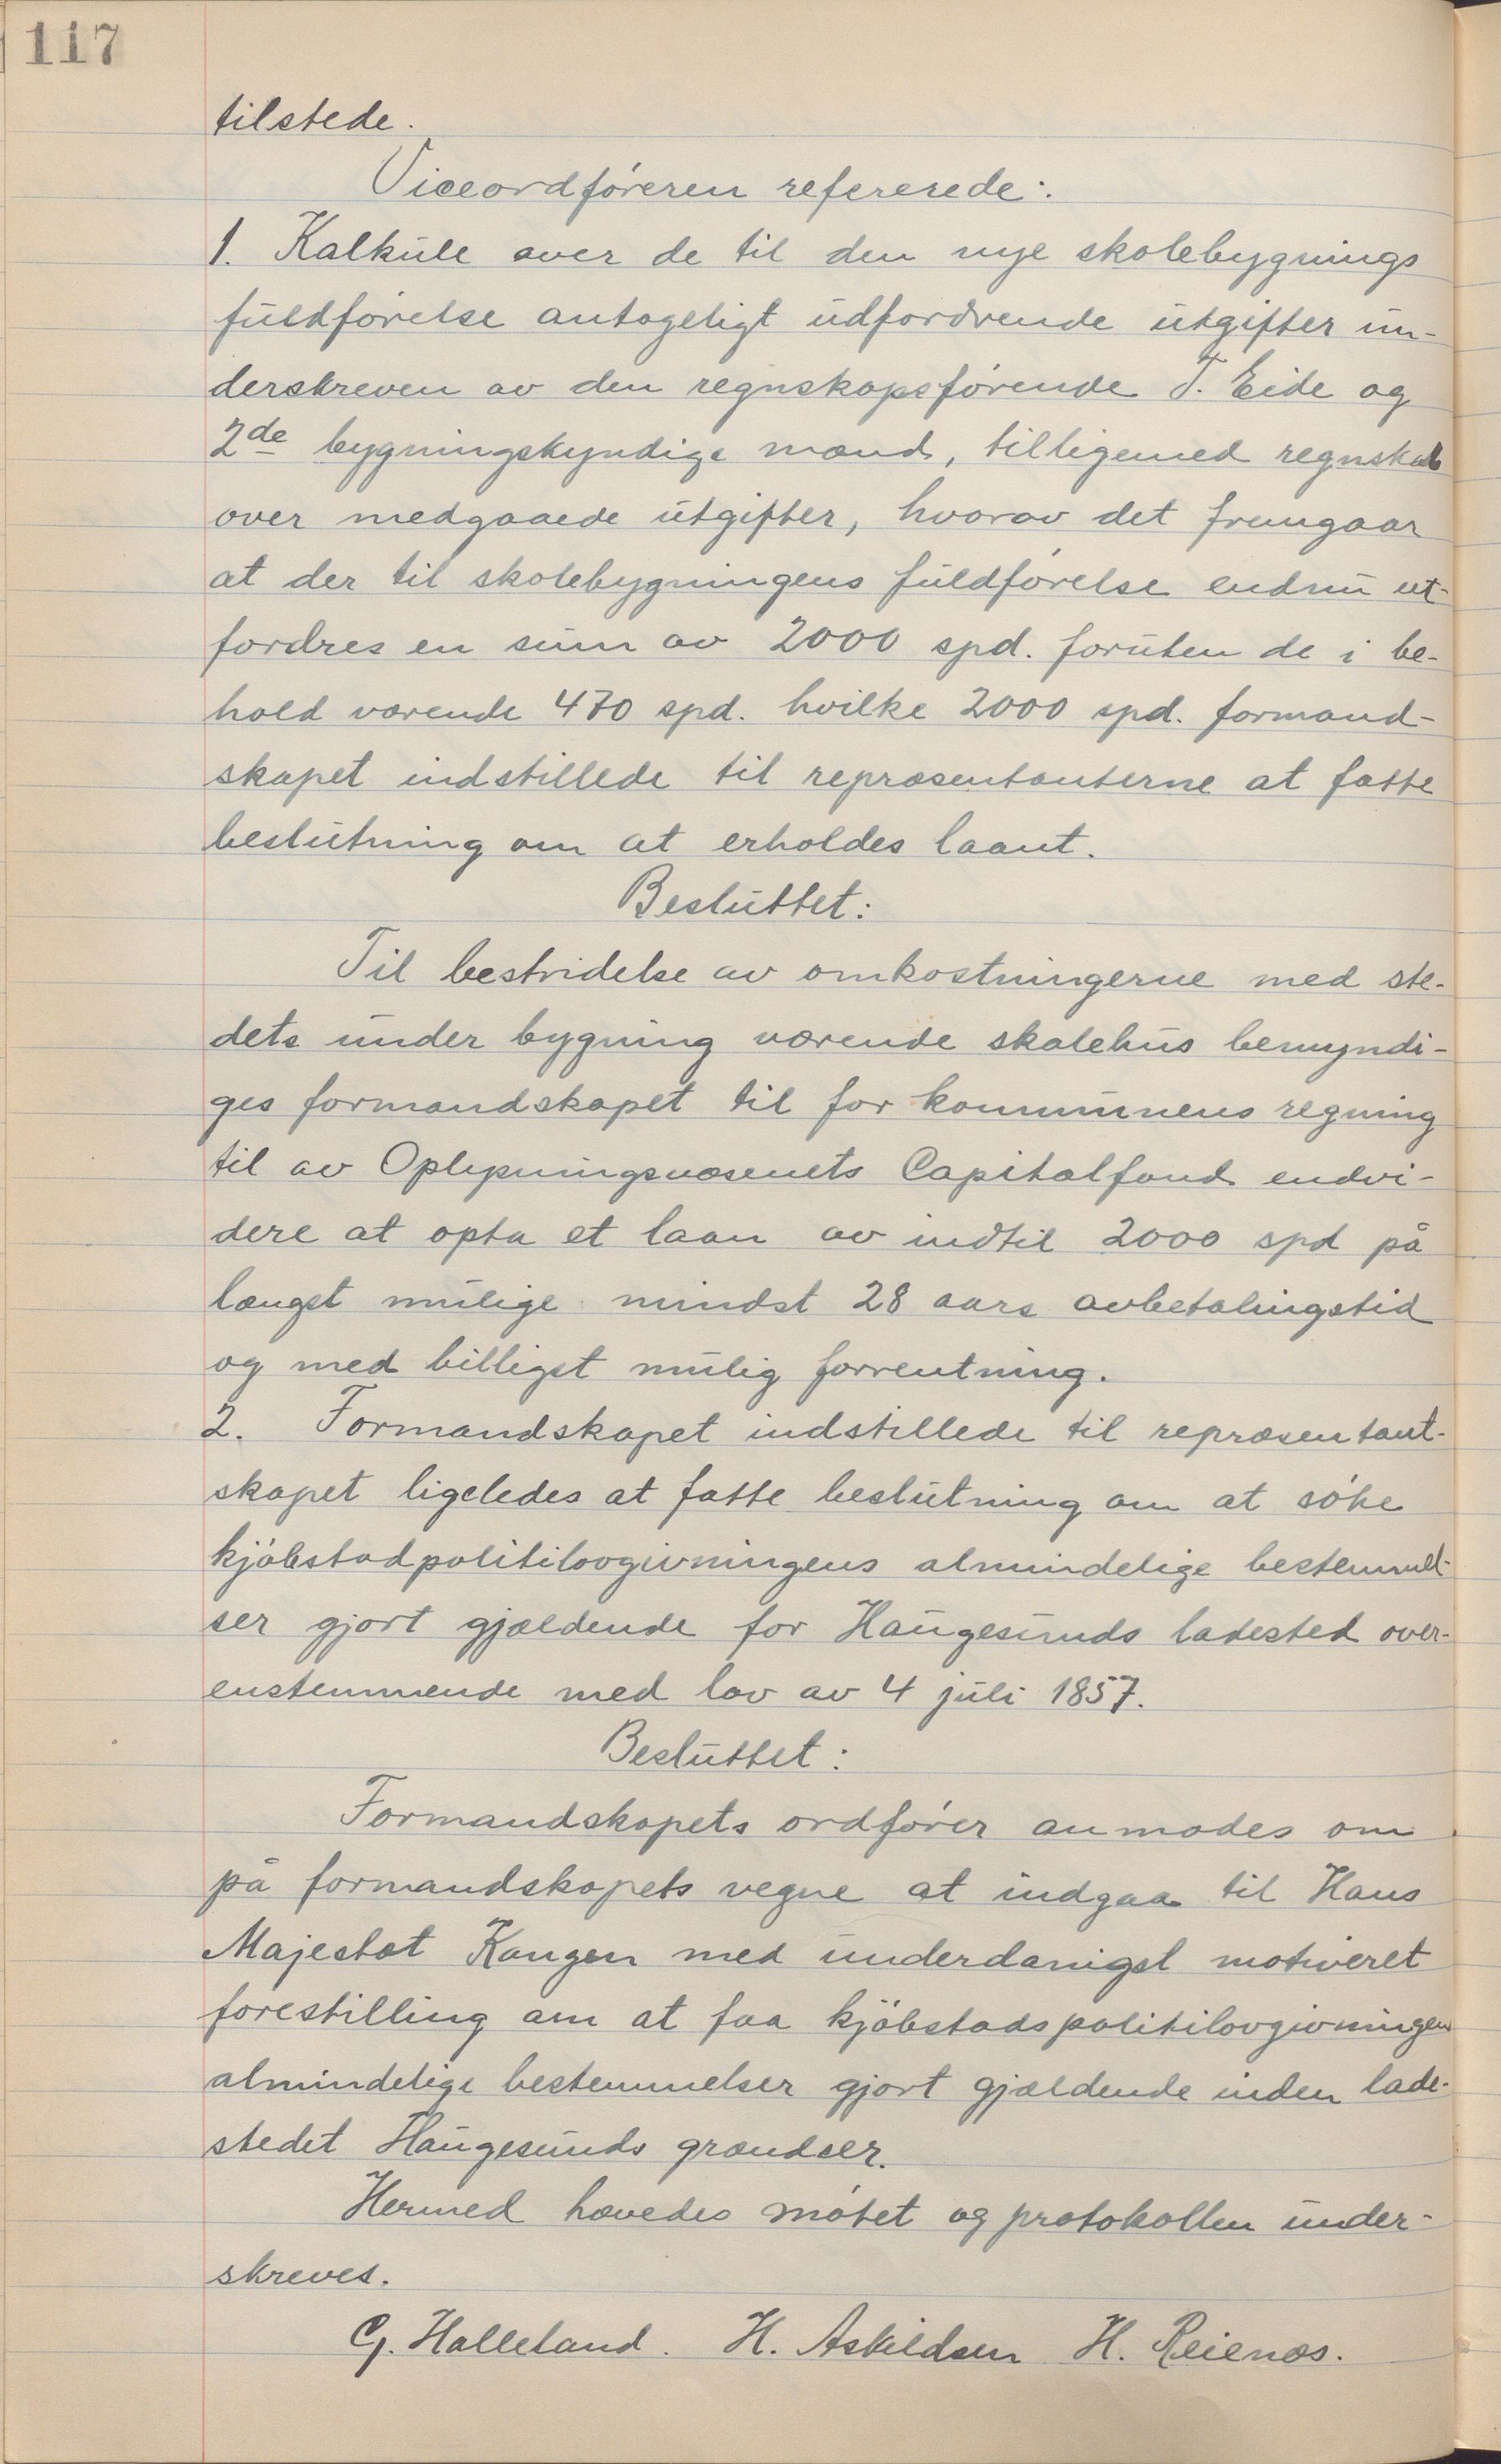 117
tilstede.
Viceordføreren refererede:
1. Kalkule over de til den nye skolebygnings
fuldførelse antageligt udfordrende utgifter un-
derskreven av den regnskapsførende T. Eide og
2de bygningskyndige mænd, tilligemed regnskab
over medgaaede utgifter, hvorav det fremgaar
at der til skolebygningens fuldførelse endnu ut-
fordres en sum av 2000 spd. foruten de i be-
hold værende 470 spd. hvilke 2000 spd. formand-
skapet indstillede til repræsentanterne at fatte
beslutning om at erholdes laant.
Besluttet:
Til bestridelse av omkostningerne med ste-
dets under bygning værende skolehus bemyndi-
ges formandskapet til for kommunens regning
til av Oplysningsvæsenets Capitalfond endvi-
dere at opta et laan av indtil 2000 spd på
længst mulige mindst 28 aars avbetalingstid
og med billigst mulig forrentning.
2. Formandskapet indstillede til repræsentant-
skapet ligeledes at fatte beslutning om at søke
kjøbstadpolitilovgivningens almindelige bestemmel-
ser gjort gjældende for Haugesunds ladested over-
enstemmende med lov av 4 juli 1857.
Besluttet:
Formandskapets ordfører anmodes om
på formandskapets vegne at indgaa til Hans
Majestæt Kongen med underdanigst motiveret
forestilling om at faa kjøbstadspolitilovgivningens
almindelige bestemmelser gjort gjældende inden lade-
stedet Haugesunds grændser.
Hermed hævedes møtet og protokollen under-
skreves.
G. Halleland. H. Askildsen H. Reienæs.